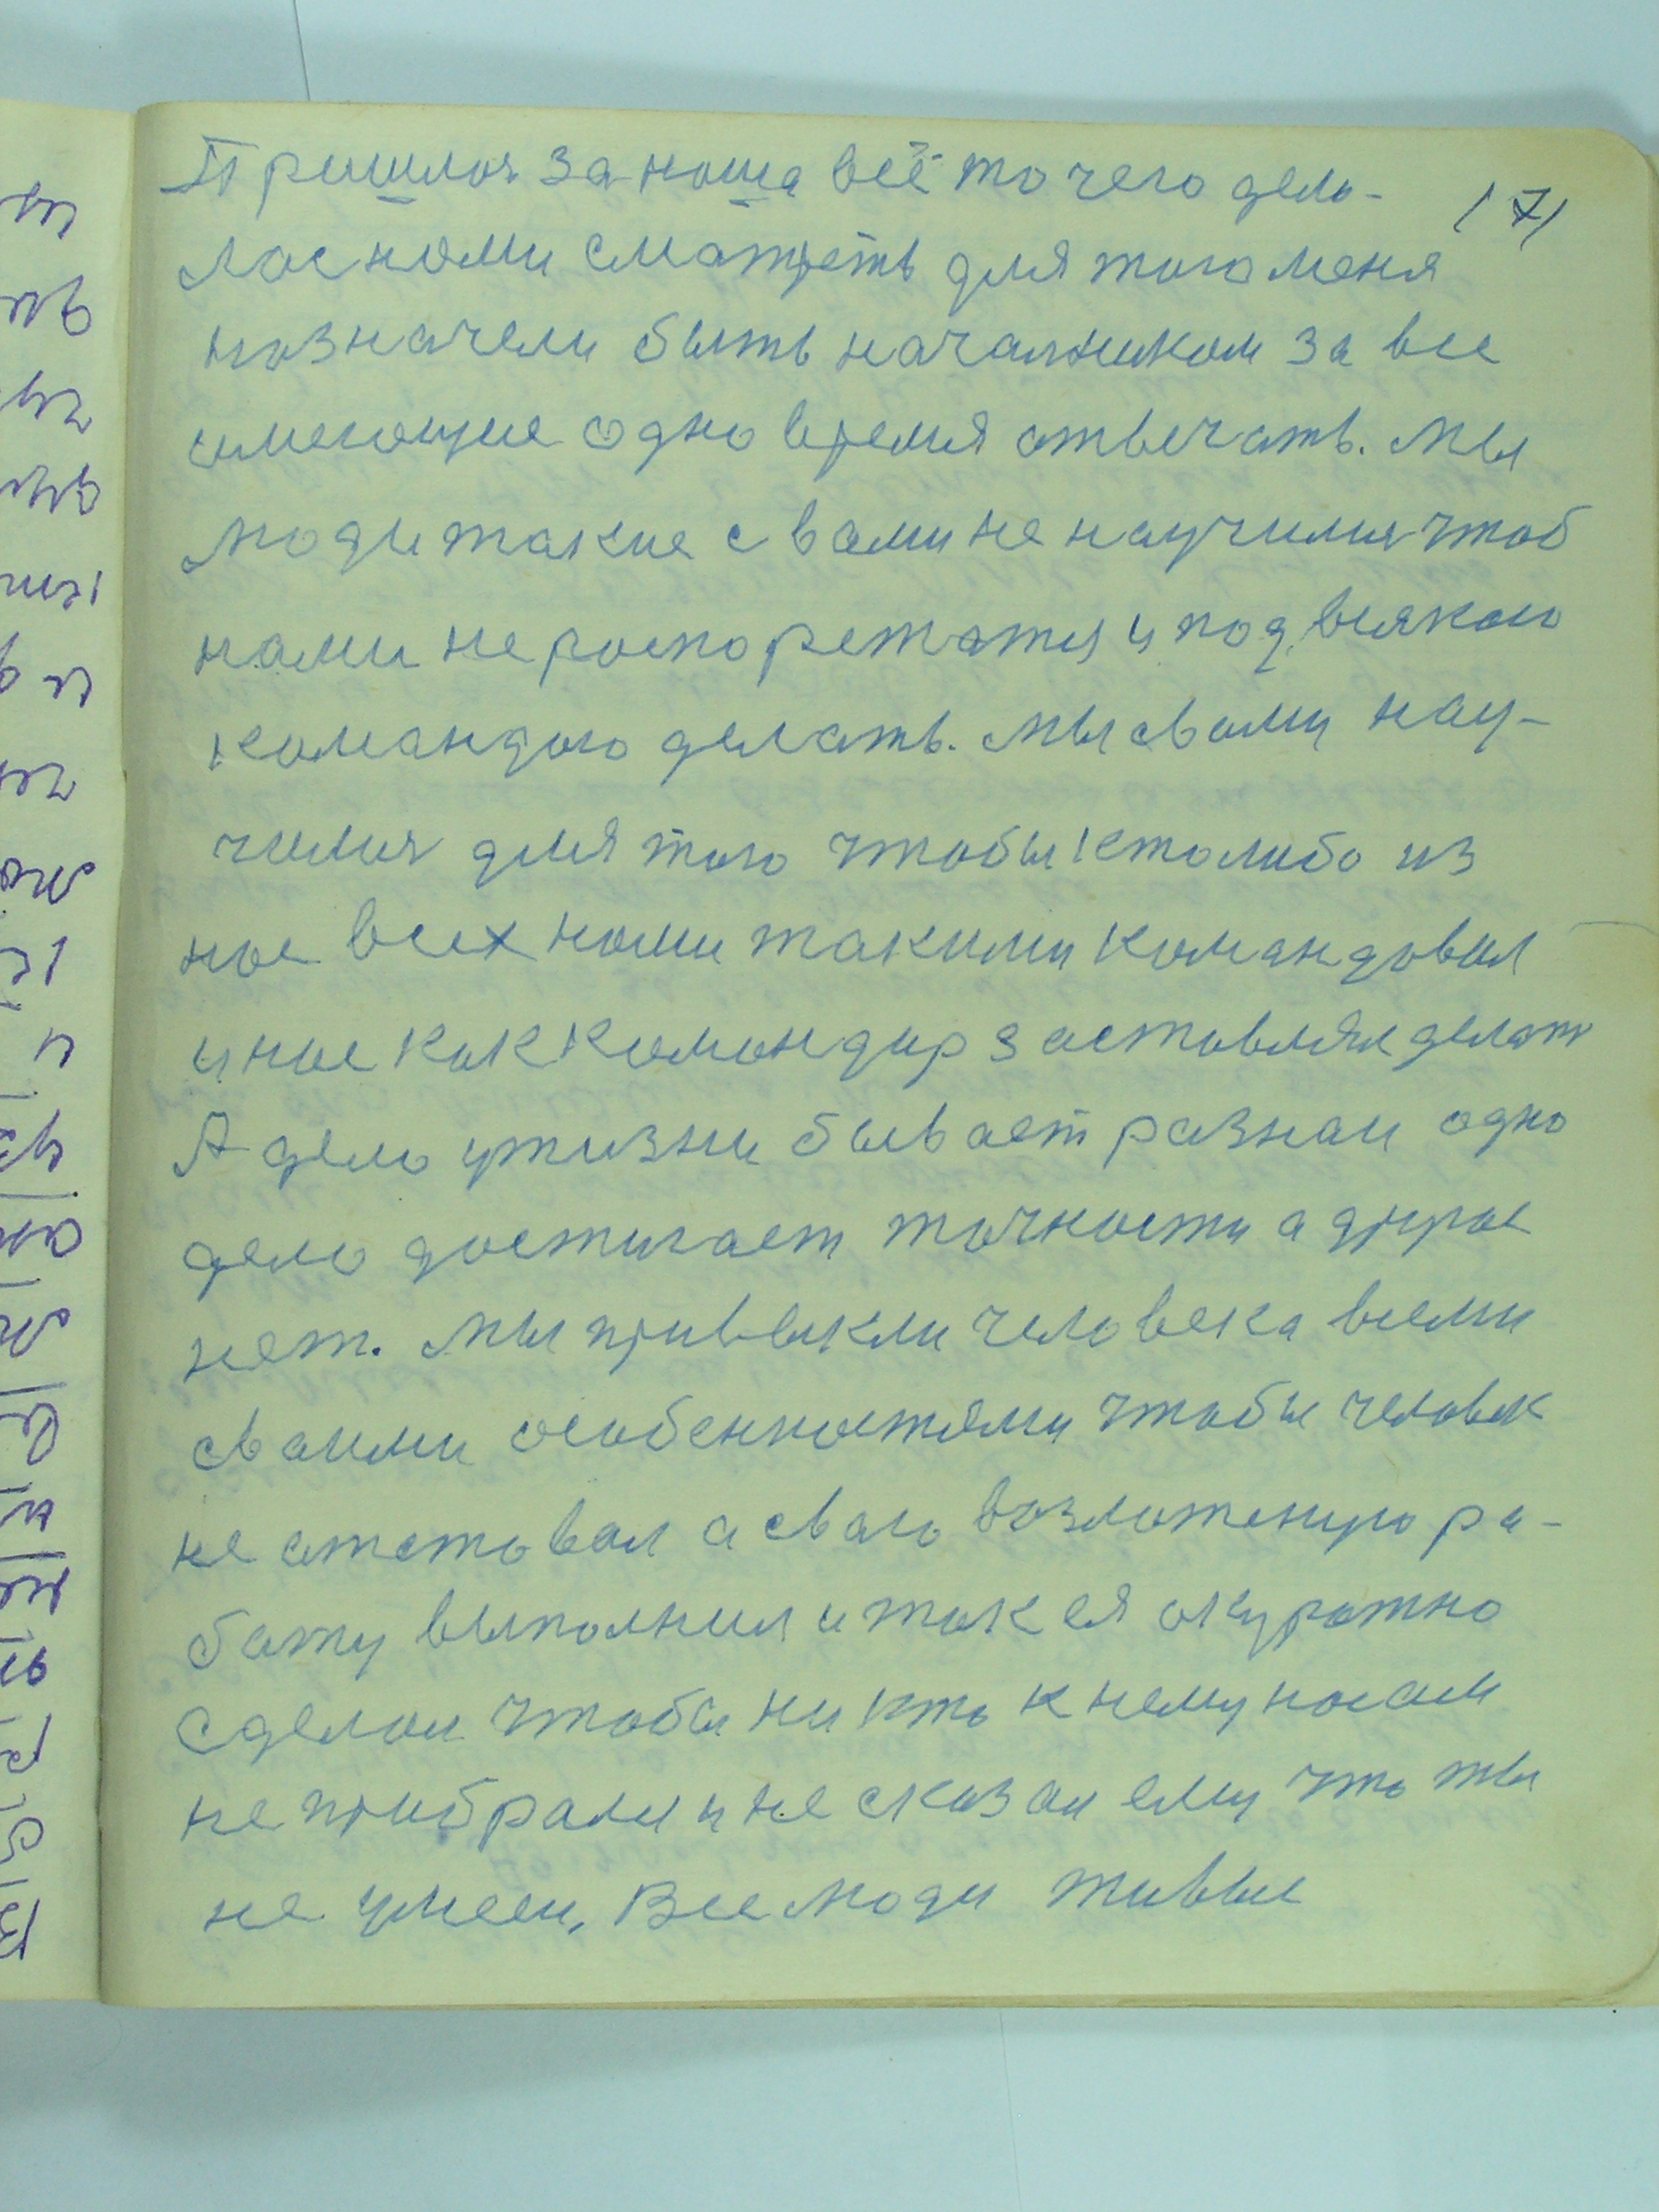 Пришлоя за наша всё то чего дела-
/7/
лос нами сматреть для того меня
назначели быть началником за все
имеющие одно время отвечать. Мы
люди такие с вами не научимя чтоб
нами не распорежатя и под всякою
командою делать. Мы свами нау-
чимя для того чтобы ктолибо из
нас всех нами такими командовал
и нас как командир заставлял делат
А дело ужизни бывает разнаи одно
дело достигает точности а другое
нет. Мы привыкли человека всеми
сваими особенностями чтобы человек
не отставал а сваю возложеную ра-
боту выполнил и так ея акуратно
сделал чтобы ни кто к нему носам
не прибрали и не сказал ему что ты
не умееш, Все люди живые